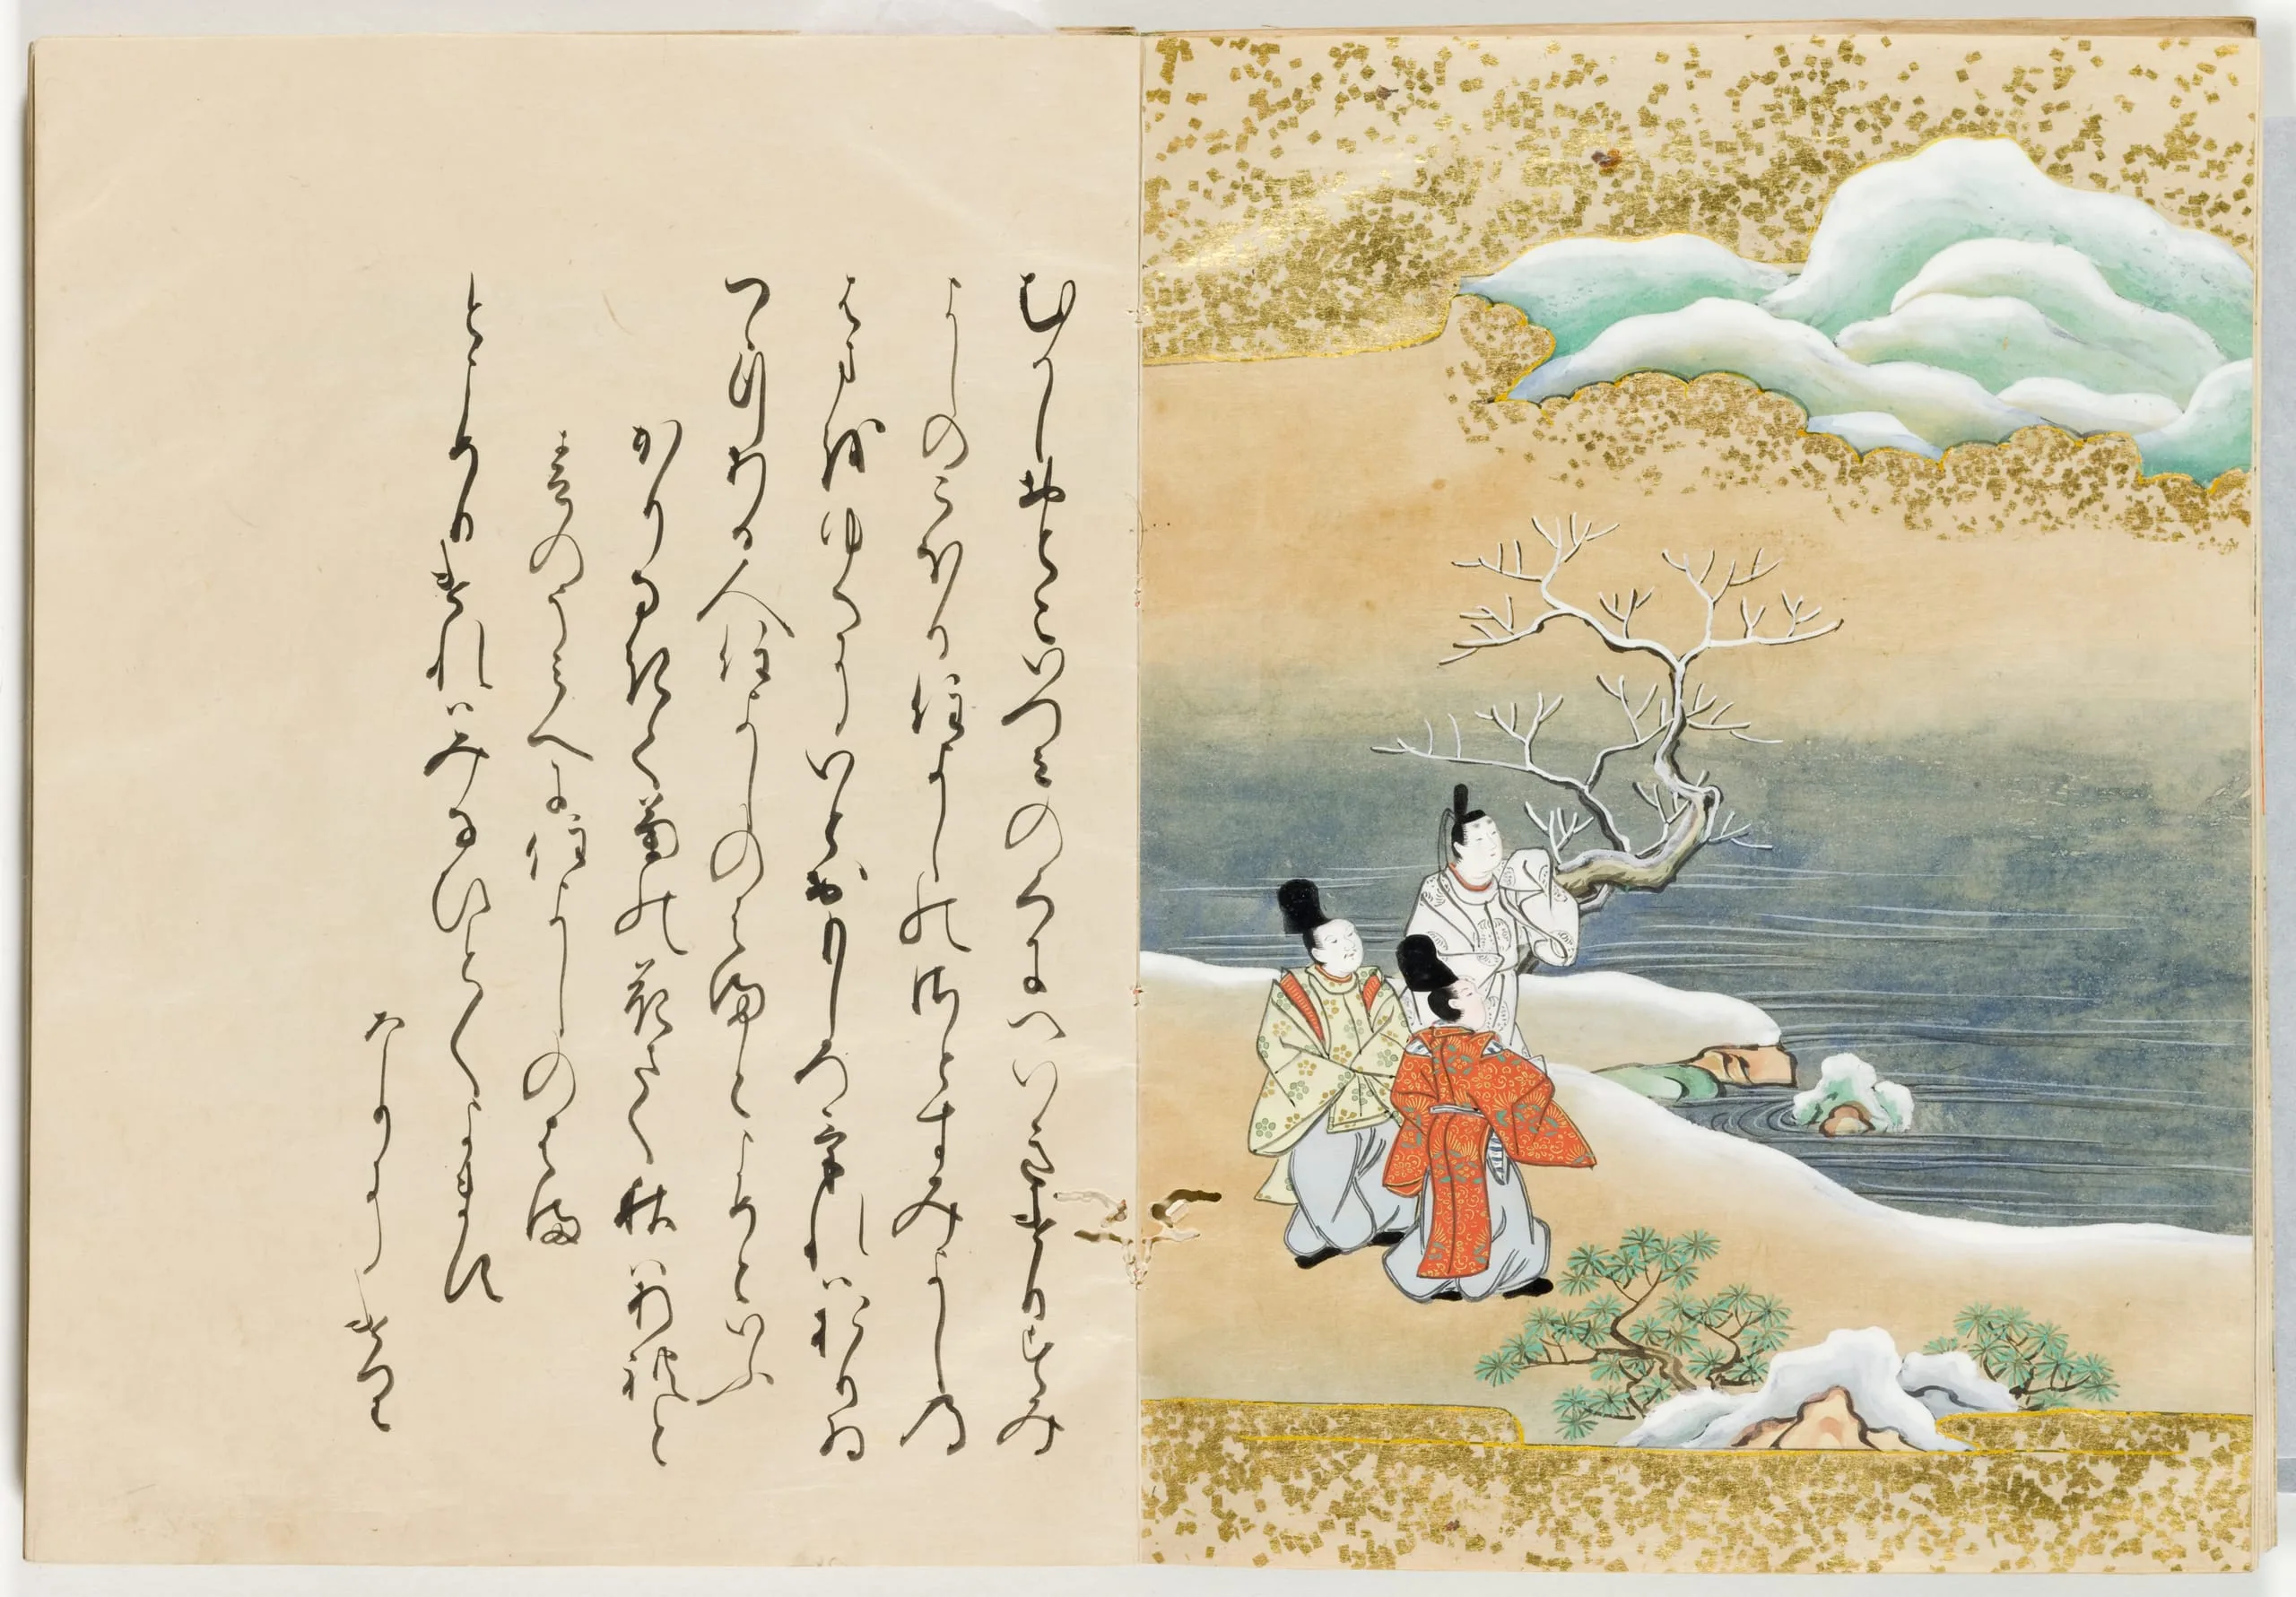 むかしおとこいつみのくにへいきけりすみ
よしのこほり住よしのさとすみよしの
はまをゆくにいとおもしろけれはおりゐ
つゝ行ある人住よしのはまとよめといふ
かりなきて菊の花さく秋はあれと
春のうみへに住よしのはま
とよめりけれはみなひと〳〵よます
なりにけり